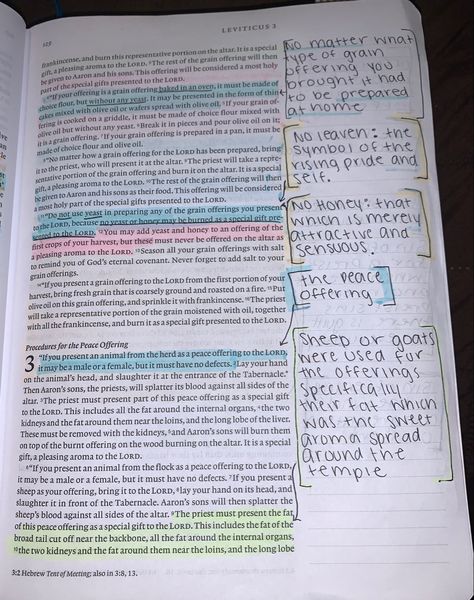 LEVITICUS 3
129
frankincense, and burn this representative portion on the altar. It is a special
gift, a pleasing aroma to the LORD. ³The rest of the grain offering will then
be given to Aaron and his sons. This offering will be considered a most holy
part of the special gifts presented to the LORD.
⁴"If your offering is a grain offering baked in an oven, it must be made of
choice flour, but without any yeast. It may be presented in the form of thin
cakes mixed with olive oil or wafers spread with olive oil. ⁵If your grain of-
fering is cooked on a griddle, it must be made of choice flour mixed with
olive oil but without any yeast. ⁶Break it in pieces and pour olive oil on it;
it is a grain offering. ⁷If your grain offering is prepared in a pan, it must be
made of choice flour and olive oil.
⁸"No matter how a grain offering for the LORD has been prepared, bring
it to the priest, who will present it at the altar. ⁹The priest will take a repre-
sentative portion of the grain offering and burn it on the altar. It is a special
gift, a pleasing aroma to the LORD. ¹⁰The rest of the grain offering will then
be given to Aaron and his sons as their food. This offering will be considered
a most holy part of the special gifts presented to the LORD.
¹¹"Do not use yeast in preparing any of the grain offerings you present
to the LORD, because no yeast or honey may be burned as a special gift pre-
sented to the LORD. ¹²You may add yeast and honey to an offering of the
first crops of your harvest, but these must never be offered on the altar as
a pleasing aroma to the LORD. ¹³Season all your grain offerings with salt
to remind you of God's eternal covenant. Never forget to add salt to your
grain offerings.
¹⁴"If you present a grain offering to the LORD from the first portion of your
harvest, bring fresh grain that is coarsely ground and roasted on a fire. ¹⁵Put
olive oil on this grain offering, and sprinkle it with frankincense. ¹⁶The priest
will take a representative portion of the grain moistened with oil, together
with all the frankincense, and burn it as a special gift presented to the LORD.
Procedures for the Peace Offering
3 "If you present an animal from the herd as a peace offering to the LORD,
it may be a male or a female, but it must have no defects. ²Lay your hand
on the animal's head, and slaughter it at the entrance of the Tabernacle.*
Then Aaron's sons, the priests, will splatter its blood against all sides of the
altar. ³The priest must present part of this peace offering as a special gift
to the LORD. This includes all the fat around the internal organs, ⁴the two
kidneys and the fat around them near the loins, and the long lobe of the liver.
These must be removed with the kidneys, ⁵and Aaron's sons will burn them
on top of the burnt offering on the wood burning on the altar. It is a special
gift, a pleasing aroma to the LORD.
⁶"If you present an animal from the flock as a peace offering to the LORD,
it may be a male or a female, but it must have no defects. ⁷If you present a
sheep as your offering, bring it to the LORD, ⁸lay your hand on its head, and
slaughter it in front of the Tabernacle. Aaron's sons will then splatter the
sheep's blood against all sides of the altar. ⁹The priest must present the fat
of this peace offering as a special gift to the LORD. This includes the fat of the
broad tail cut off near the backbone, all the fat around the internal organs,
¹⁰the two kidneys and the fat around them near the loins, and the long lobe
3:2 Hebrew Tent of Meeting; also in 3:8, 13.
No matter what
type of grain
offering you
brought it had
to be prepared
at home
No leaven: the
symbol of the
rising pride and
self.
No Honey: that
which is merely
attractive and
sensuous.
the peace
offering.
Sheep or goats
were used for
the offerings
specifically
their fat which
was the sweet
aroma spread
around the
temple